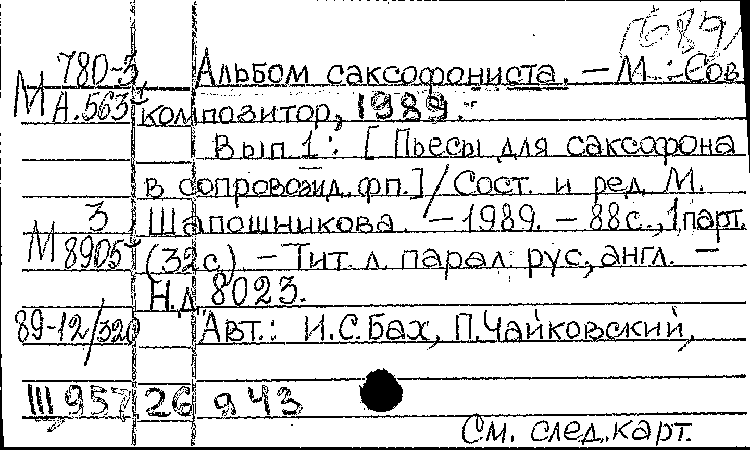 1689
780-3 Альбом саксофониста. – М.: Сов.
М А.563 композитор, 1989.-
Вып 1: [Пьесы для саксофона
в сопровожд. фп.] / Сост. и ред. М.
3 Шапошникова. – 1989. – 88с., 1 парт.
М 8905 (32с.) – Тит. л. парал. рус., англ. –
Н.д 8023.
89-12/320 Авт.: И.С.Бах, П.Чайковский,
III 957 26 943
См. след. карт.